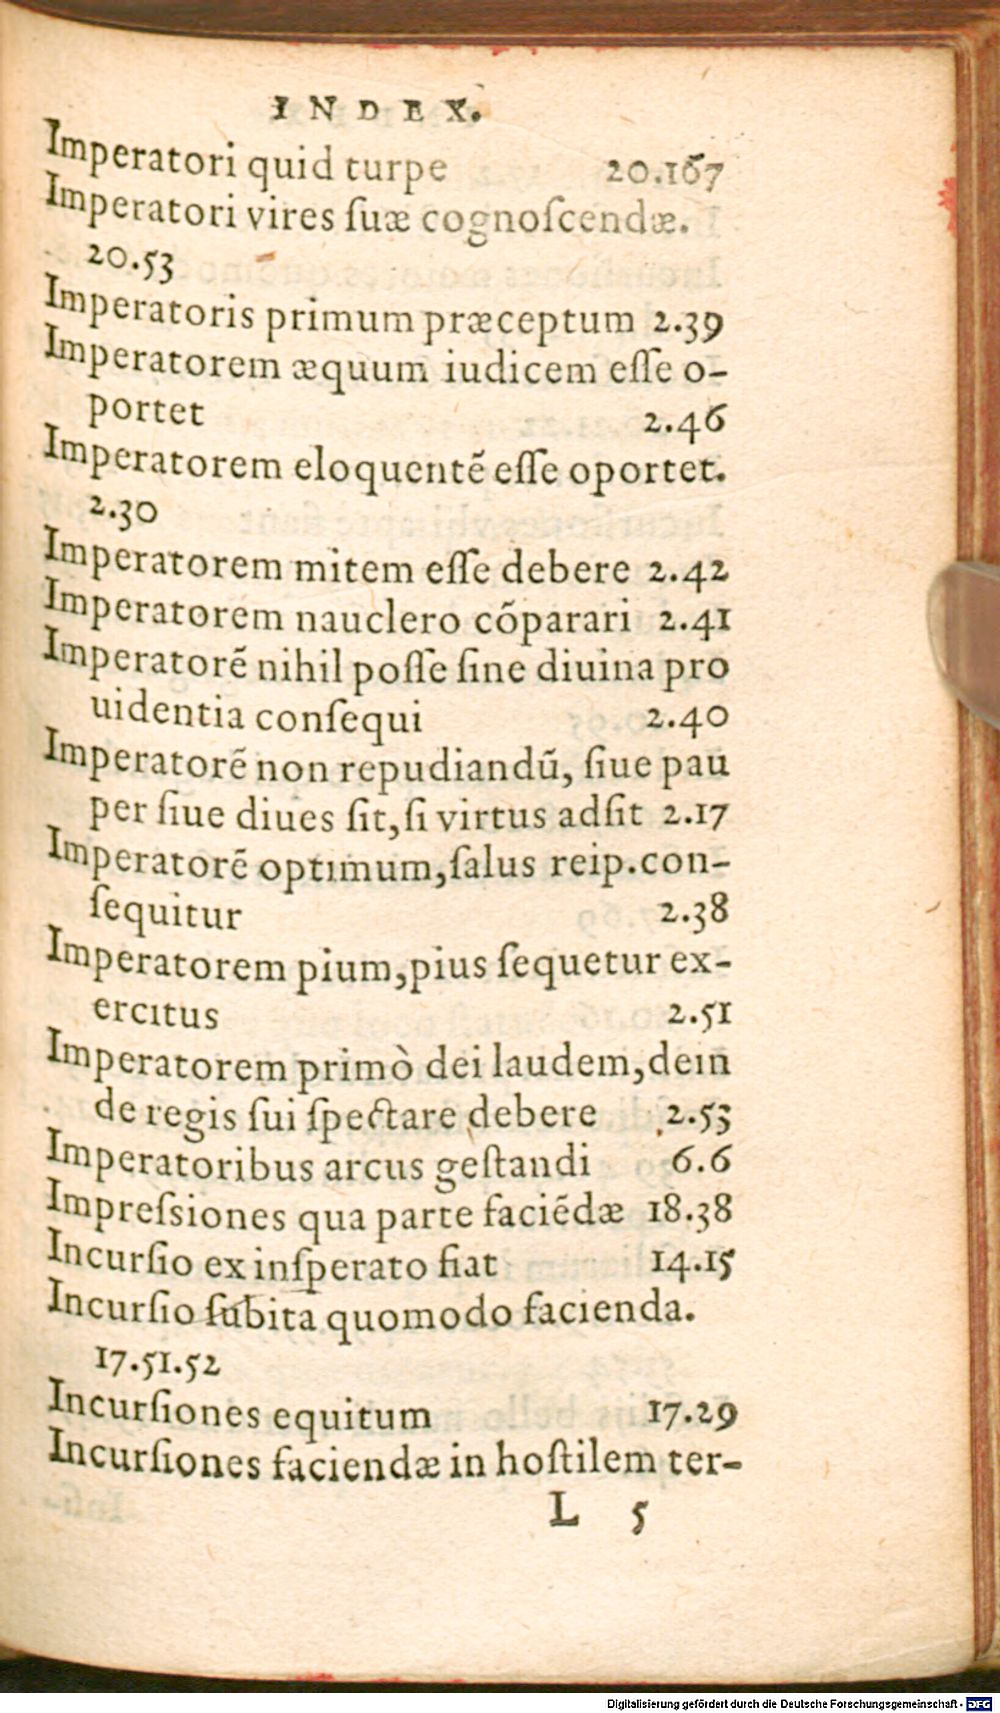 INDEX.
Imperatori quid turpe 20.167
Imperatori vires ſuæ cognoſcendæ.
20.53
Imperatoris primum præceptum 2.39
Imperatorem æquum iudicem eſſe o-
portet 2.46
Imperatorem eloquentẽ eſſe oportet.
2.30
Imperatorem mitem eſſe debere 2.42
Imperatorem nauclero cõparari 2.41
Imperatorẽ nihil poſſe ſine diuina pro
uidentia conſequi 2.40
Imperatorẽ non repudiandũ, ſiue pau
per ſiue diues ſit, ſi virtus adſit 2.17
Imperatorẽ optimum, ſalus reip. con-
ſequitur 2.38
Imperatorem pium, pius ſequetur ex-
ercitus 2.51
Imperatorem primò dei laudem, dein
de regis ſui ſpectare debere 2.53
Imperatoribus arcus geſtandi 6.6
Impreſsiones qua parte faciẽdæ 18.38
Incurſio ex inſperato fiat 14.15
Incurſio ſubita quomodo facienda.
17.51.52
Incurſiones equitum 17.29
Incurſiones faciendæ in hoſtilem ter-
L 5
Digitalisierung gefördert durch die Deutsche Forschungsgemeinschaft - DFG